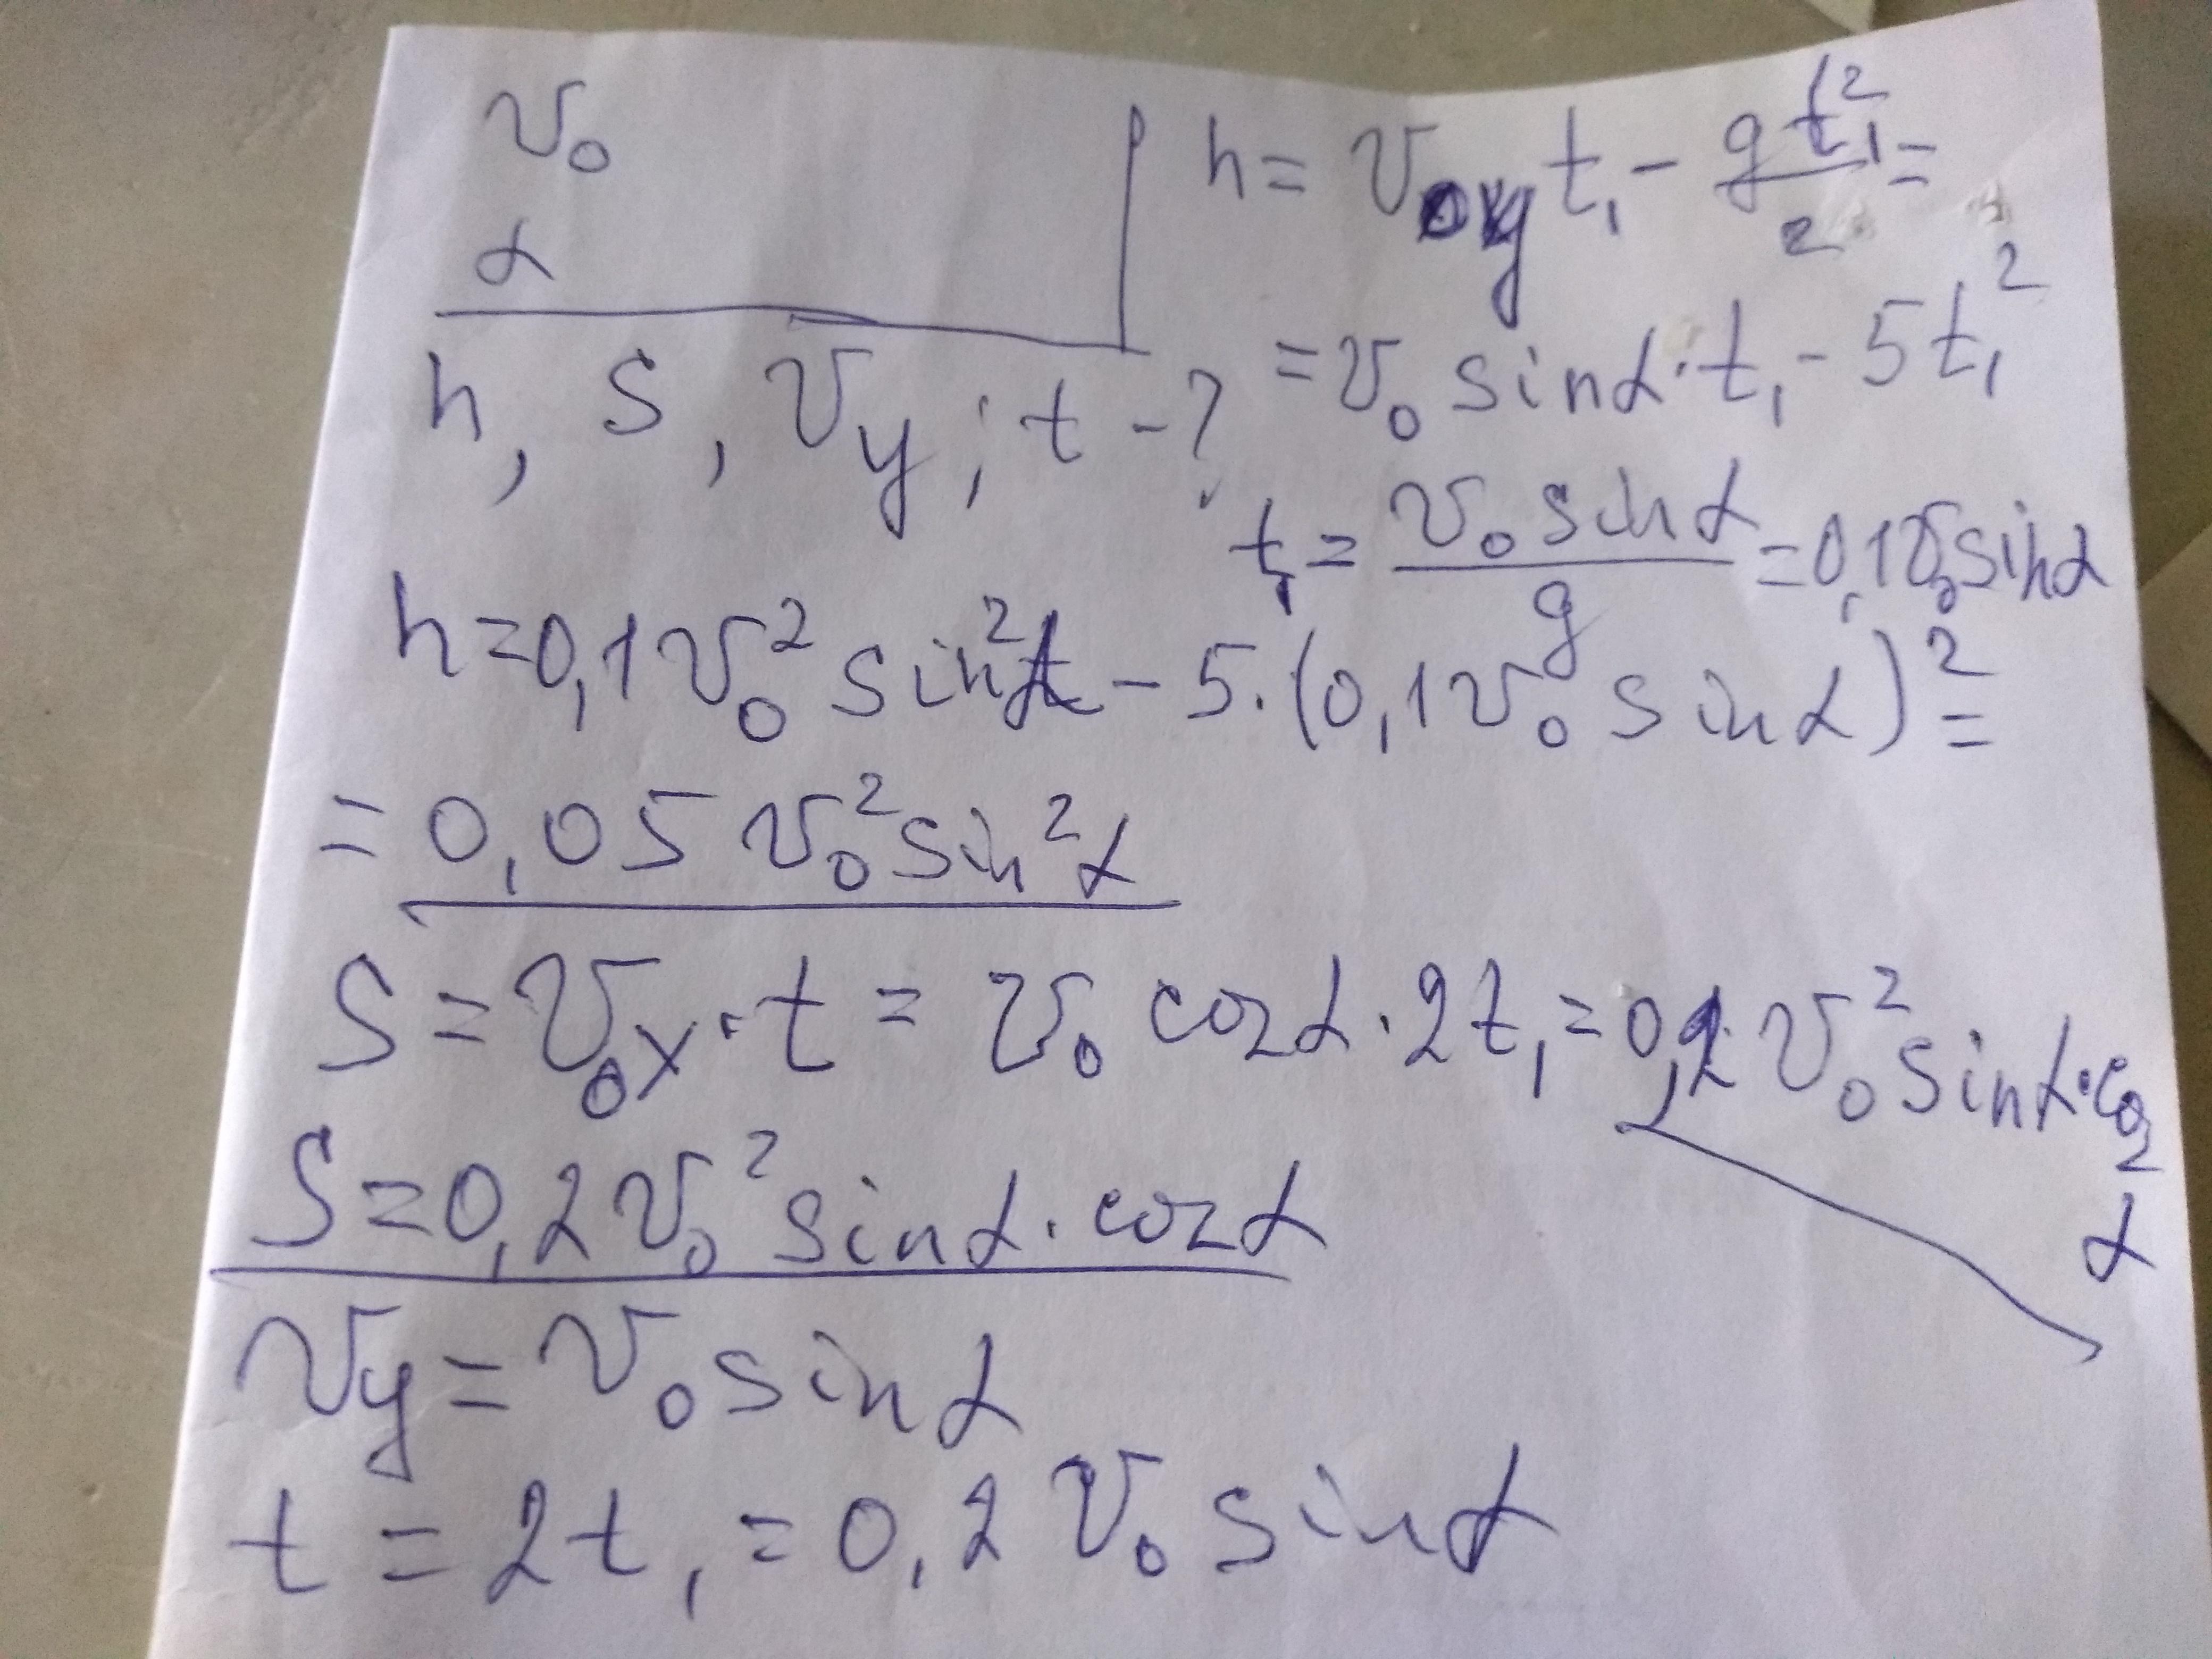 v₀
α
h, S, v_y; t - ?
h = v₀y t₁ - gt₁²/2 =
= v₀ sinα · t₁ - 5t₁²
t₁ = v₀ sinα/g = 0,1v₀sinα
h = 0,1v₀² sin²α - 5·(0,1v₀ sinα)² =
= 0,05 v₀² sin²α
S = v₀x · t = v₀ cosα · 2t₁ = 0,2 v₀² sinα · cos α
S = 0,2 v₀² sinα · cosα
v_y = v₀ sinα
t = 2t₁ = 0,2 v₀ sinα